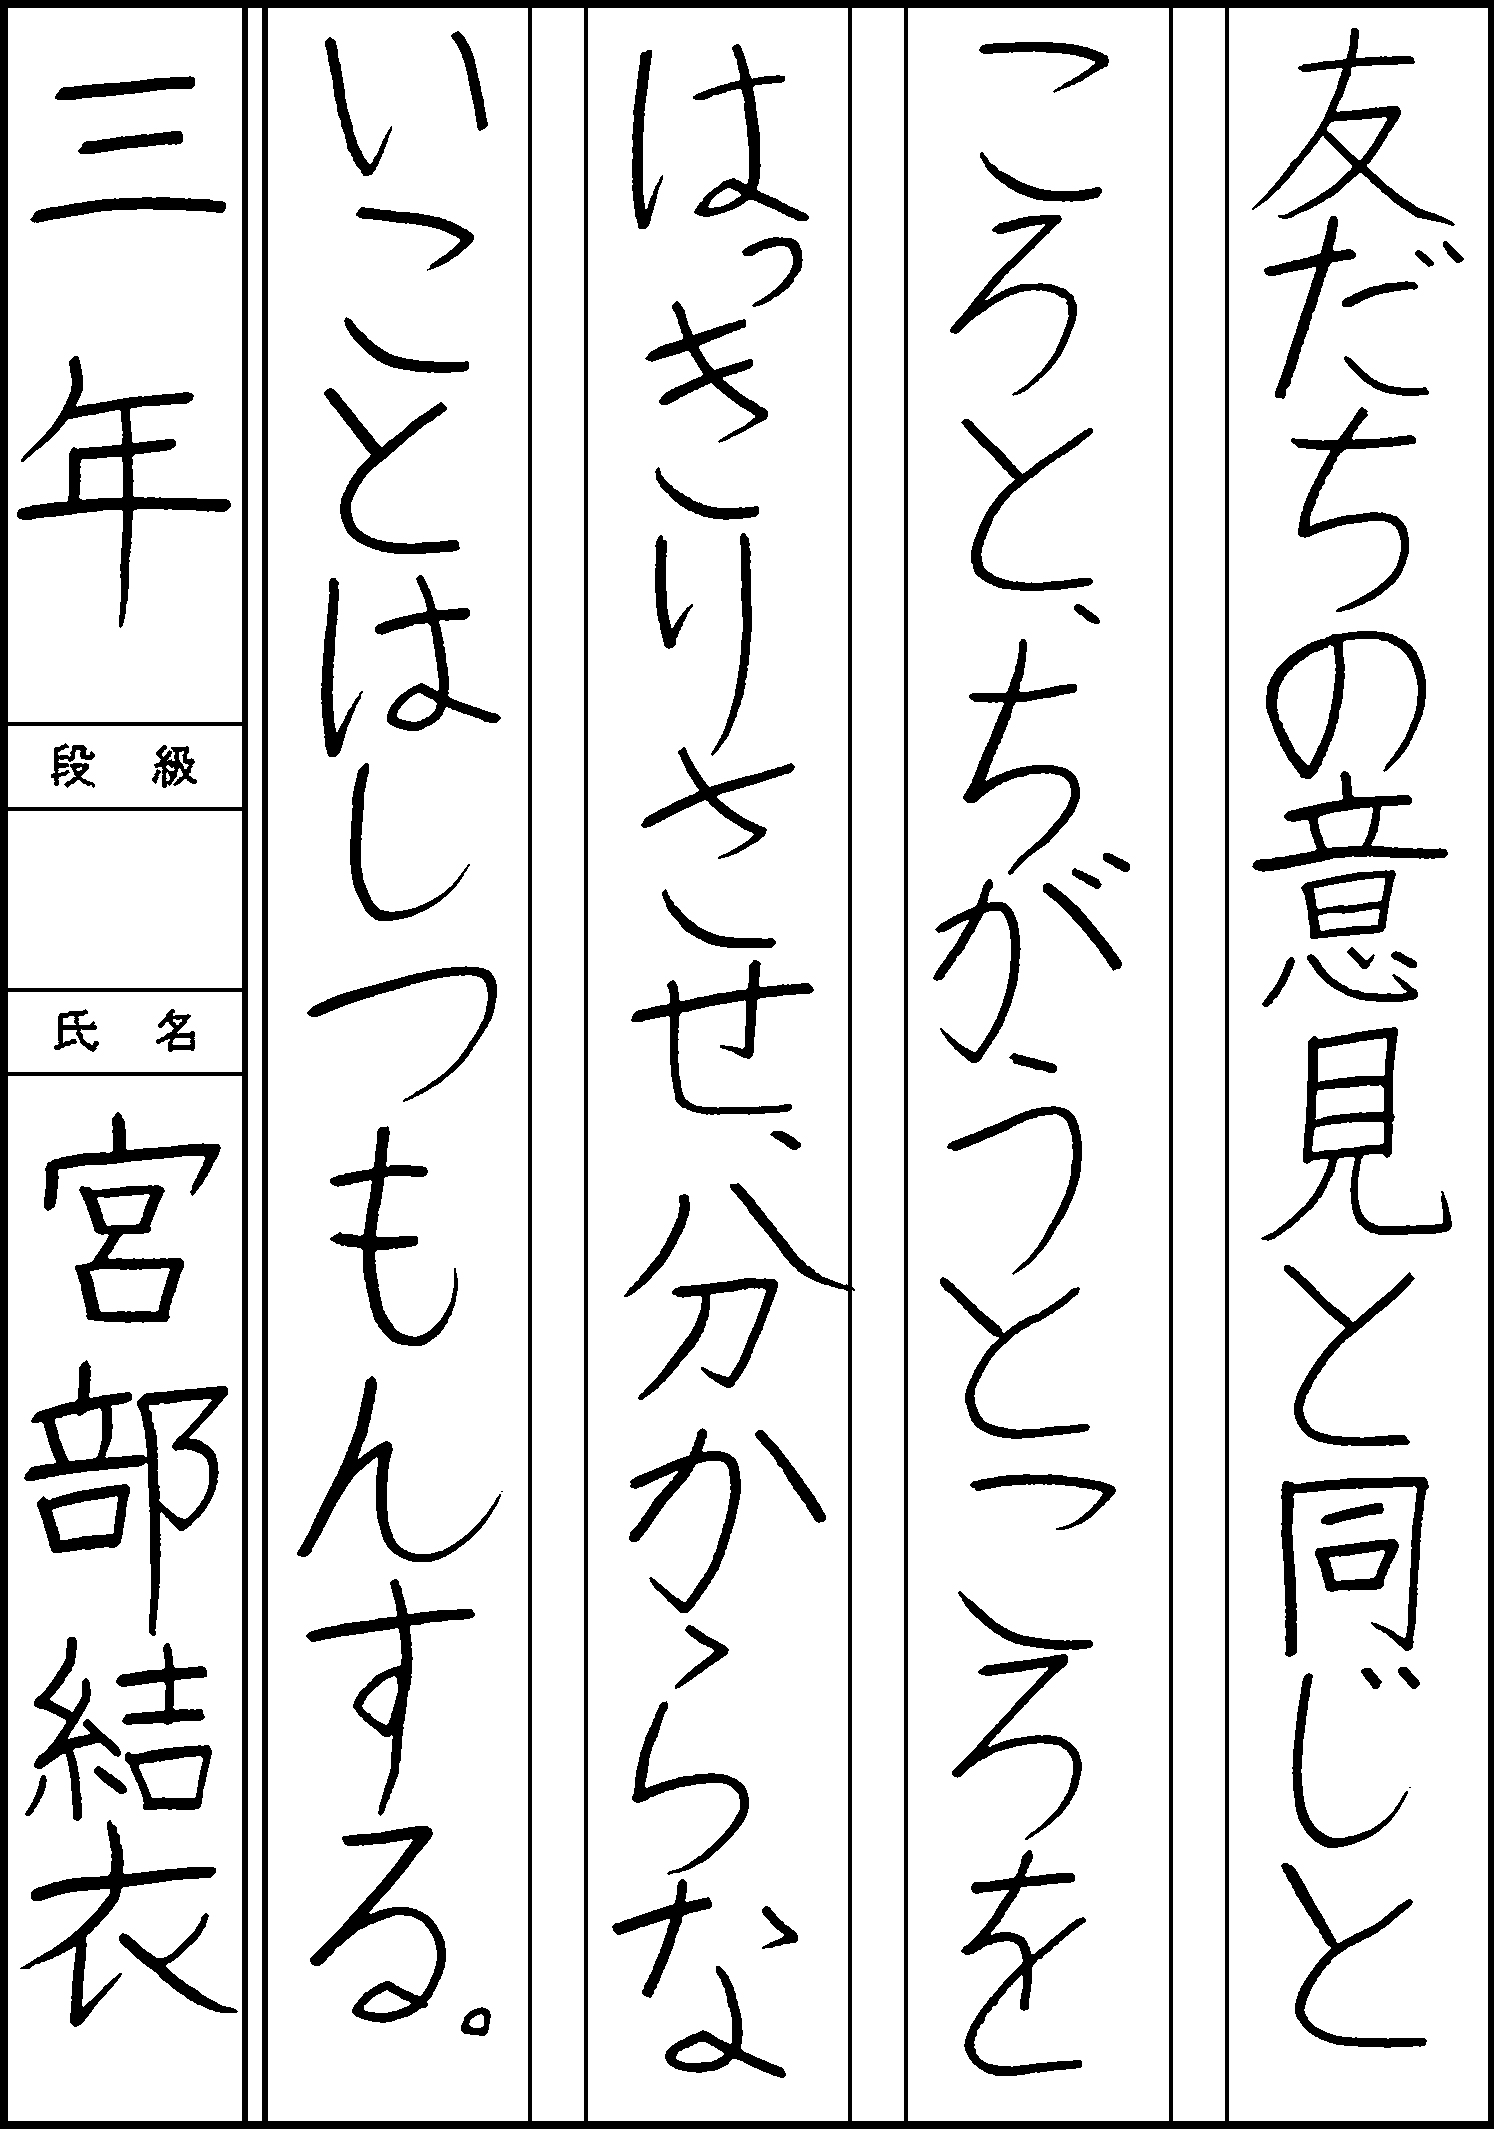 友だちの意見と同じと
ころと、ちがうところを
はっきりさせ、分からな
いことはしつもんする。
三年
段級
氏名
宮部結衣